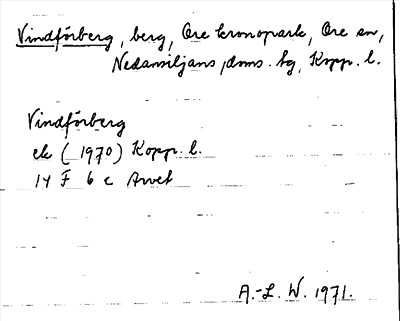 Vindförberg, berg, Ore kronopark, Ore sn,
Nedansiljans doms. hg, Kopp. l.
Vindförberg
ek (1970) Kopp. l.
14 F 6 c Arvet
A.-L. W. 1971.